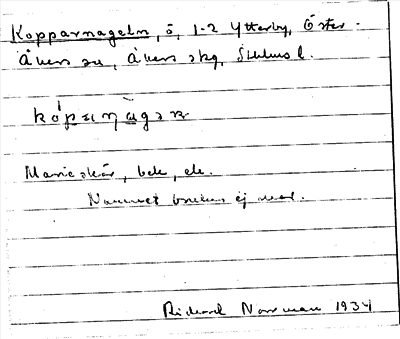 Kopparnageln, ö, 1-2 Ytterby, Öster-
Åkers sn, Åkers skg, Sthlms l.
Marieskär, bek, ek.
Namnet brukas ej mer.
Rickard Norrman 1934